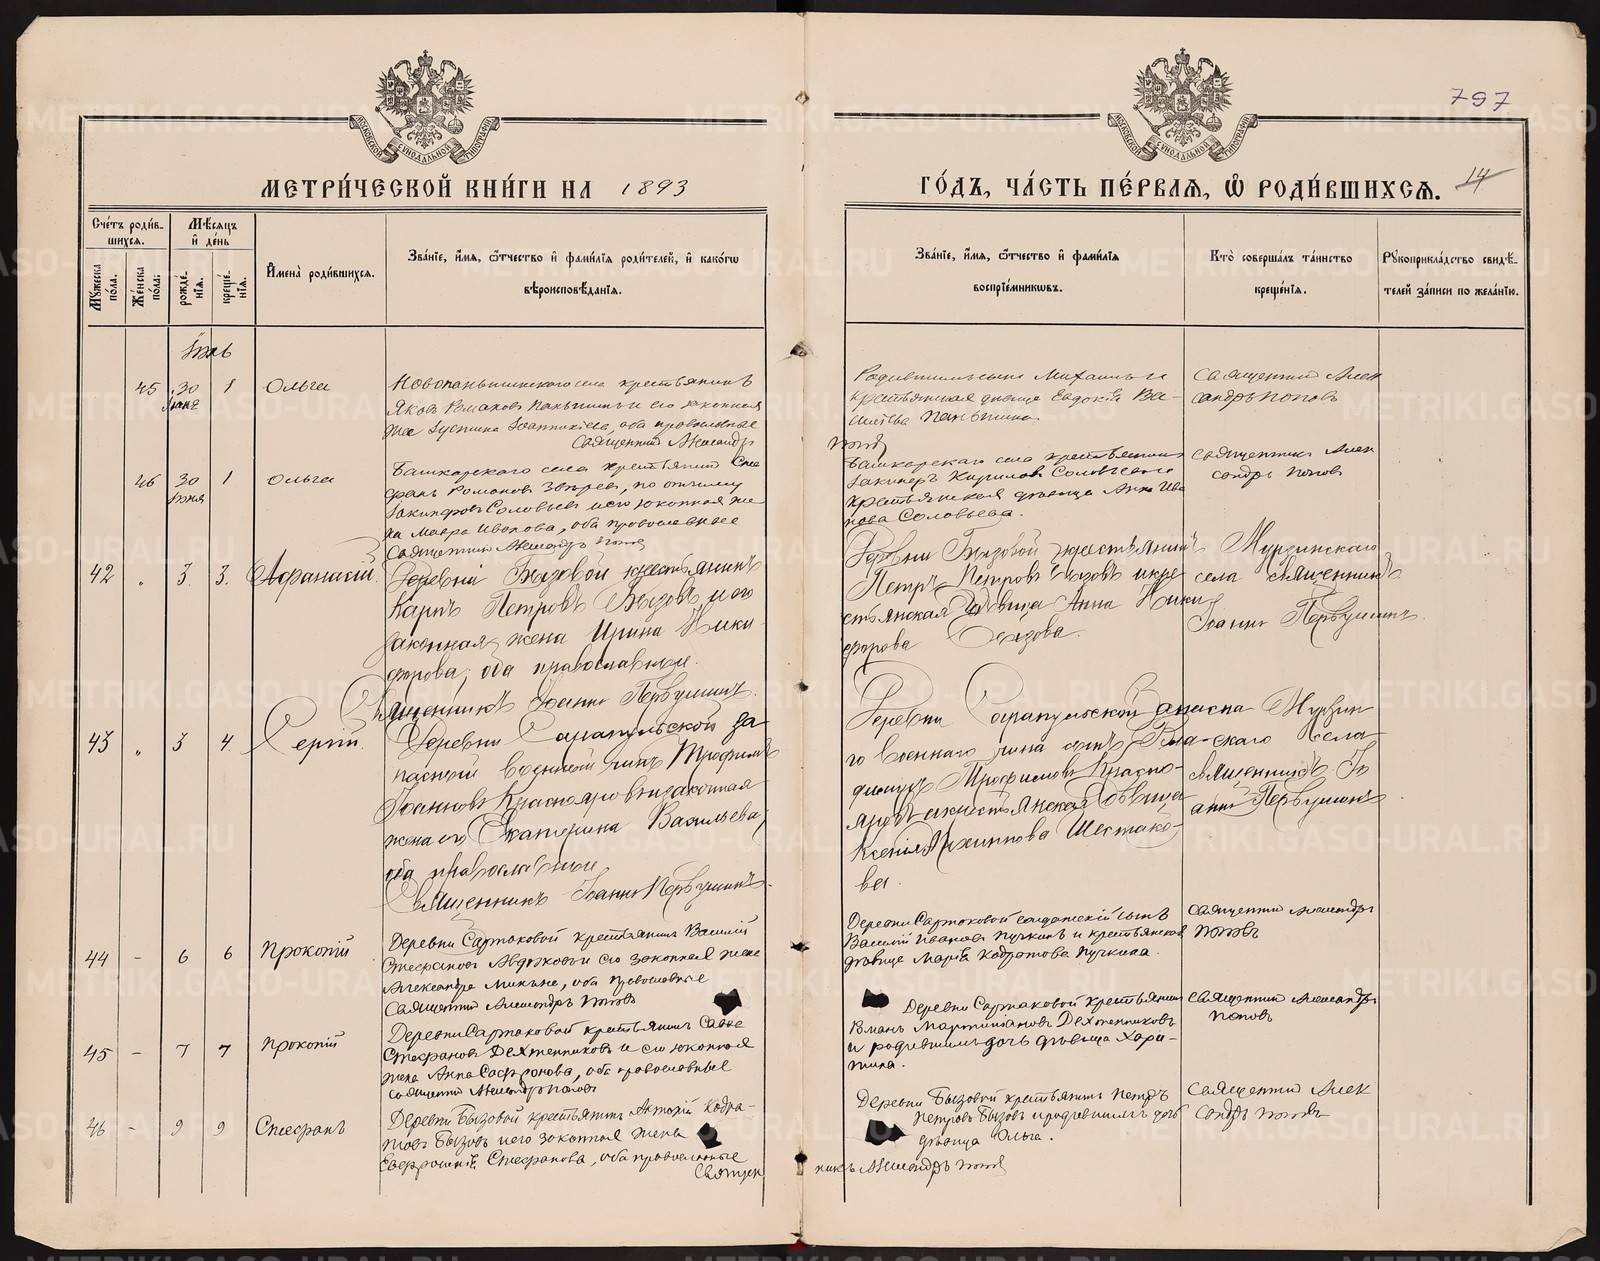 797
МЕТРИ́ЧЕСКОЙ КНИ́ГИ НА 1893
ГО́ДЪ, ЧА́СТЬ ПЕ́РВАЯ, Ѡ҆ РОДИ́ВШИХСЯ. 14
МОСКОВСКОЙ СѴНОДАЛЬНОЙ ТИПОГРАФІИ
МОСКОВСКОЙ СѴНОДАЛЬНОЙ ТИПОГРАФІИ
Сче́тъ роди́в-
шихся.
Мꙋ́жеска по́ла.
Же́нска по́ла.
Мѣ́сяцъ
и҆ де́нь
рожде́-
нїѧ.
креще́-
нїѧ.
И҆мена̀ роди́вшихся.
Зва́нїе, и҆́мя, ѻ҆́тчество и҆ фами́лїѧ роди́телей, и҆ како́гѡ
вѣроисповѣ́данїѧ.
Зва́нїе, и҆́мя, ѻ҆́тчество и҆ фами́лїѧ
воспрїе́мникѡвъ.
Кто̀ соверша́лъ та́инство
креще́нїѧ.
Рꙋкоприкла́дство свидѣ́-
телей за́писи по жела́нїю.
Іюль
45 30 1 Ольга
Іюня
крестьянинъ
Яковъ Романовъ Паньшинъ и его законная
жена оба православные
Священникъ Александръ
Попов
крестьянская девица Евдокія Ва-
сильева Паньшина.
Священникъ Алек
сандръ Поповъ
46 30 1 Ольга
Іюня
Башкарскаго села крестьянинъ Сте
фанъ Романовъ Зверев, по отчиму
Соловьевъ и его законная же
на Мавра Иванова, оба православные
Священникъ Александръ Попов
Башкарскаго села крестьянинъ
Кириловъ Соловьевъ и
крестьянская девица Анна Ива
нова Соловьева.
Священникъ Алек
сандръ Поповъ
42 " 3. 3. Афанасій.
Деревни Бызовой крестьянинъ
Карпъ Петровъ Бызовъ, и его
законная жена Ирина Ники
форова, оба православные.
Священникъ Іоаннъ Первушинъ.
Деревни Бызовой крестьянинъ
Петръ Петровъ Бызовъ и кре
стьянская девица Анна Ники
форова Бызова.
Мурзинскаго
села священникъ
Іоаннъ Первушинъ
43 " 3 4. Сергій.
Деревни Сарапульской за
пасный военный чинъ Трофимъ
Іоанновъ Краснояровъ и законная
жена его Екатерина Васильева,
оба православные
Священникъ Іоаннъ Первушинъ.
Деревни Сарапульской запасна
го военнаго чина сынъ
Трофимовъ Красно-
яровъ и крестьянская девица
Ксенія Шестако-
ва.
Мурзин
скаго села
священникъ Іо
аннъ Первушинъ
44 – 6 6 Прокопій
Деревни Сартаковой крестьянинъ Василій
Стефановъ и его законная жена
Александра оба православные
Священникъ Александръ Попов
Деревни Сартаковой солдатскій сынъ
Василій Ивановъ Пучкинъ и крестьянская
девица Марія Кодратова Пучкина.
Священникъ Александръ
Поповъ
45 – 7 7 Прокопій
Деревни Сартаковой крестьянинъ Савва
Стефановъ Дехтенниковъ и его законная
жена Анна Сафронова, оба православные
Священникъ Александръ Попов
Деревни Сартаковой крестьянинъ
Романъ Дехтенниковъ
и дочь девица Хари-
тина.
Священникъ Александръ
Поповъ
46 – 9 9 Стефанъ
Деревни Бызовой крестьянинъ Кодра-
товъ Бызовъ и его законная жена
Стефанова, оба православные
Священ
никъ Александръ Попов
Деревни Бызовой крестьянинъ Петръ
Петровъ Бызовъ и дочь
девица Ольга.
Священникъ Алек
сандръ Поповъ
METRIKI.GASO-URAL.RU